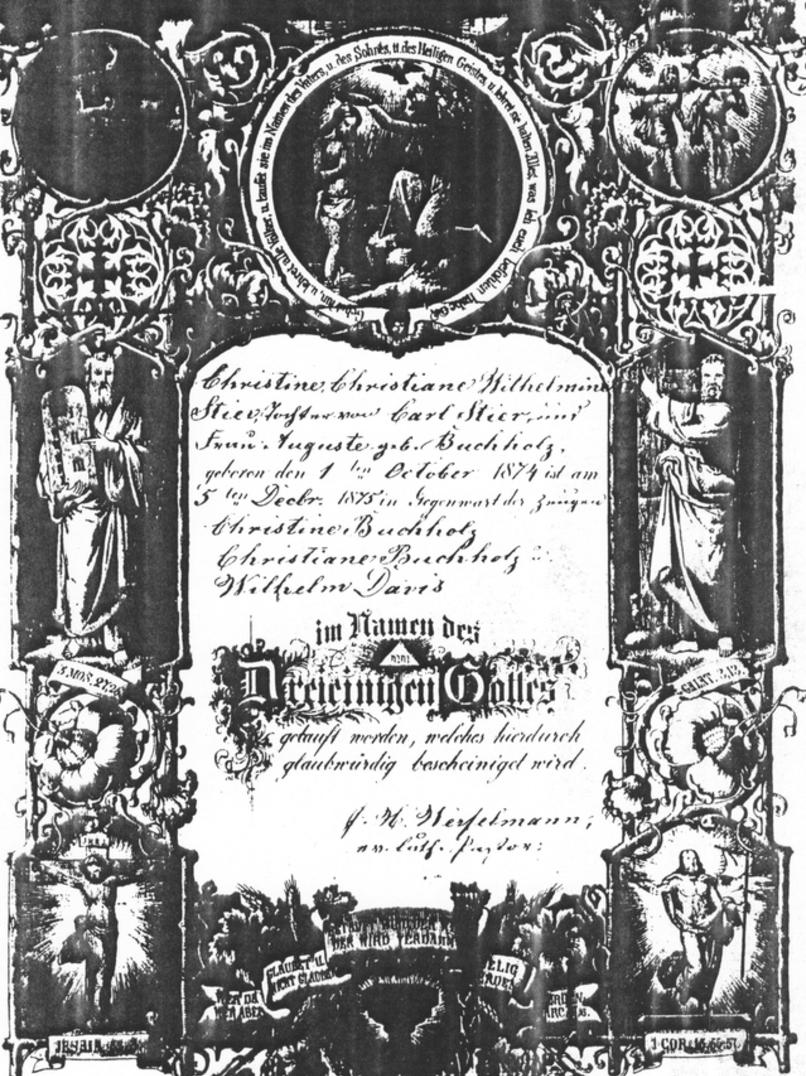 u. taufet sie im Namen des Vaters, u. des Sohnes, u. des Heiligen Geistes, u. lehret sie halten Alles, was ich euch befohlen habe
Christine, Christiane Wilhelmine
Stier, Tochter von Carl Stier, und
Frau Auguste geb. Buchholz,
geboren den 1 ten October 1874 ist am
5 ten Decbr. 1875 in Gegenwart der Zeugen
Christine Buchholz
Christiane Buchholz u.
Wilhelm Davis
im Namen des
Dreieinigen Gottes
getauft worden, welches hierdurch
glaubwürdig bescheiniget wird.
ev. luth. Pastor.
INRI
WER DA GLAUBET U. GETAUFT WIRD, DER
WER ABER NICHT GLAUBET DER WIRD VERDAMMT
1 COR.